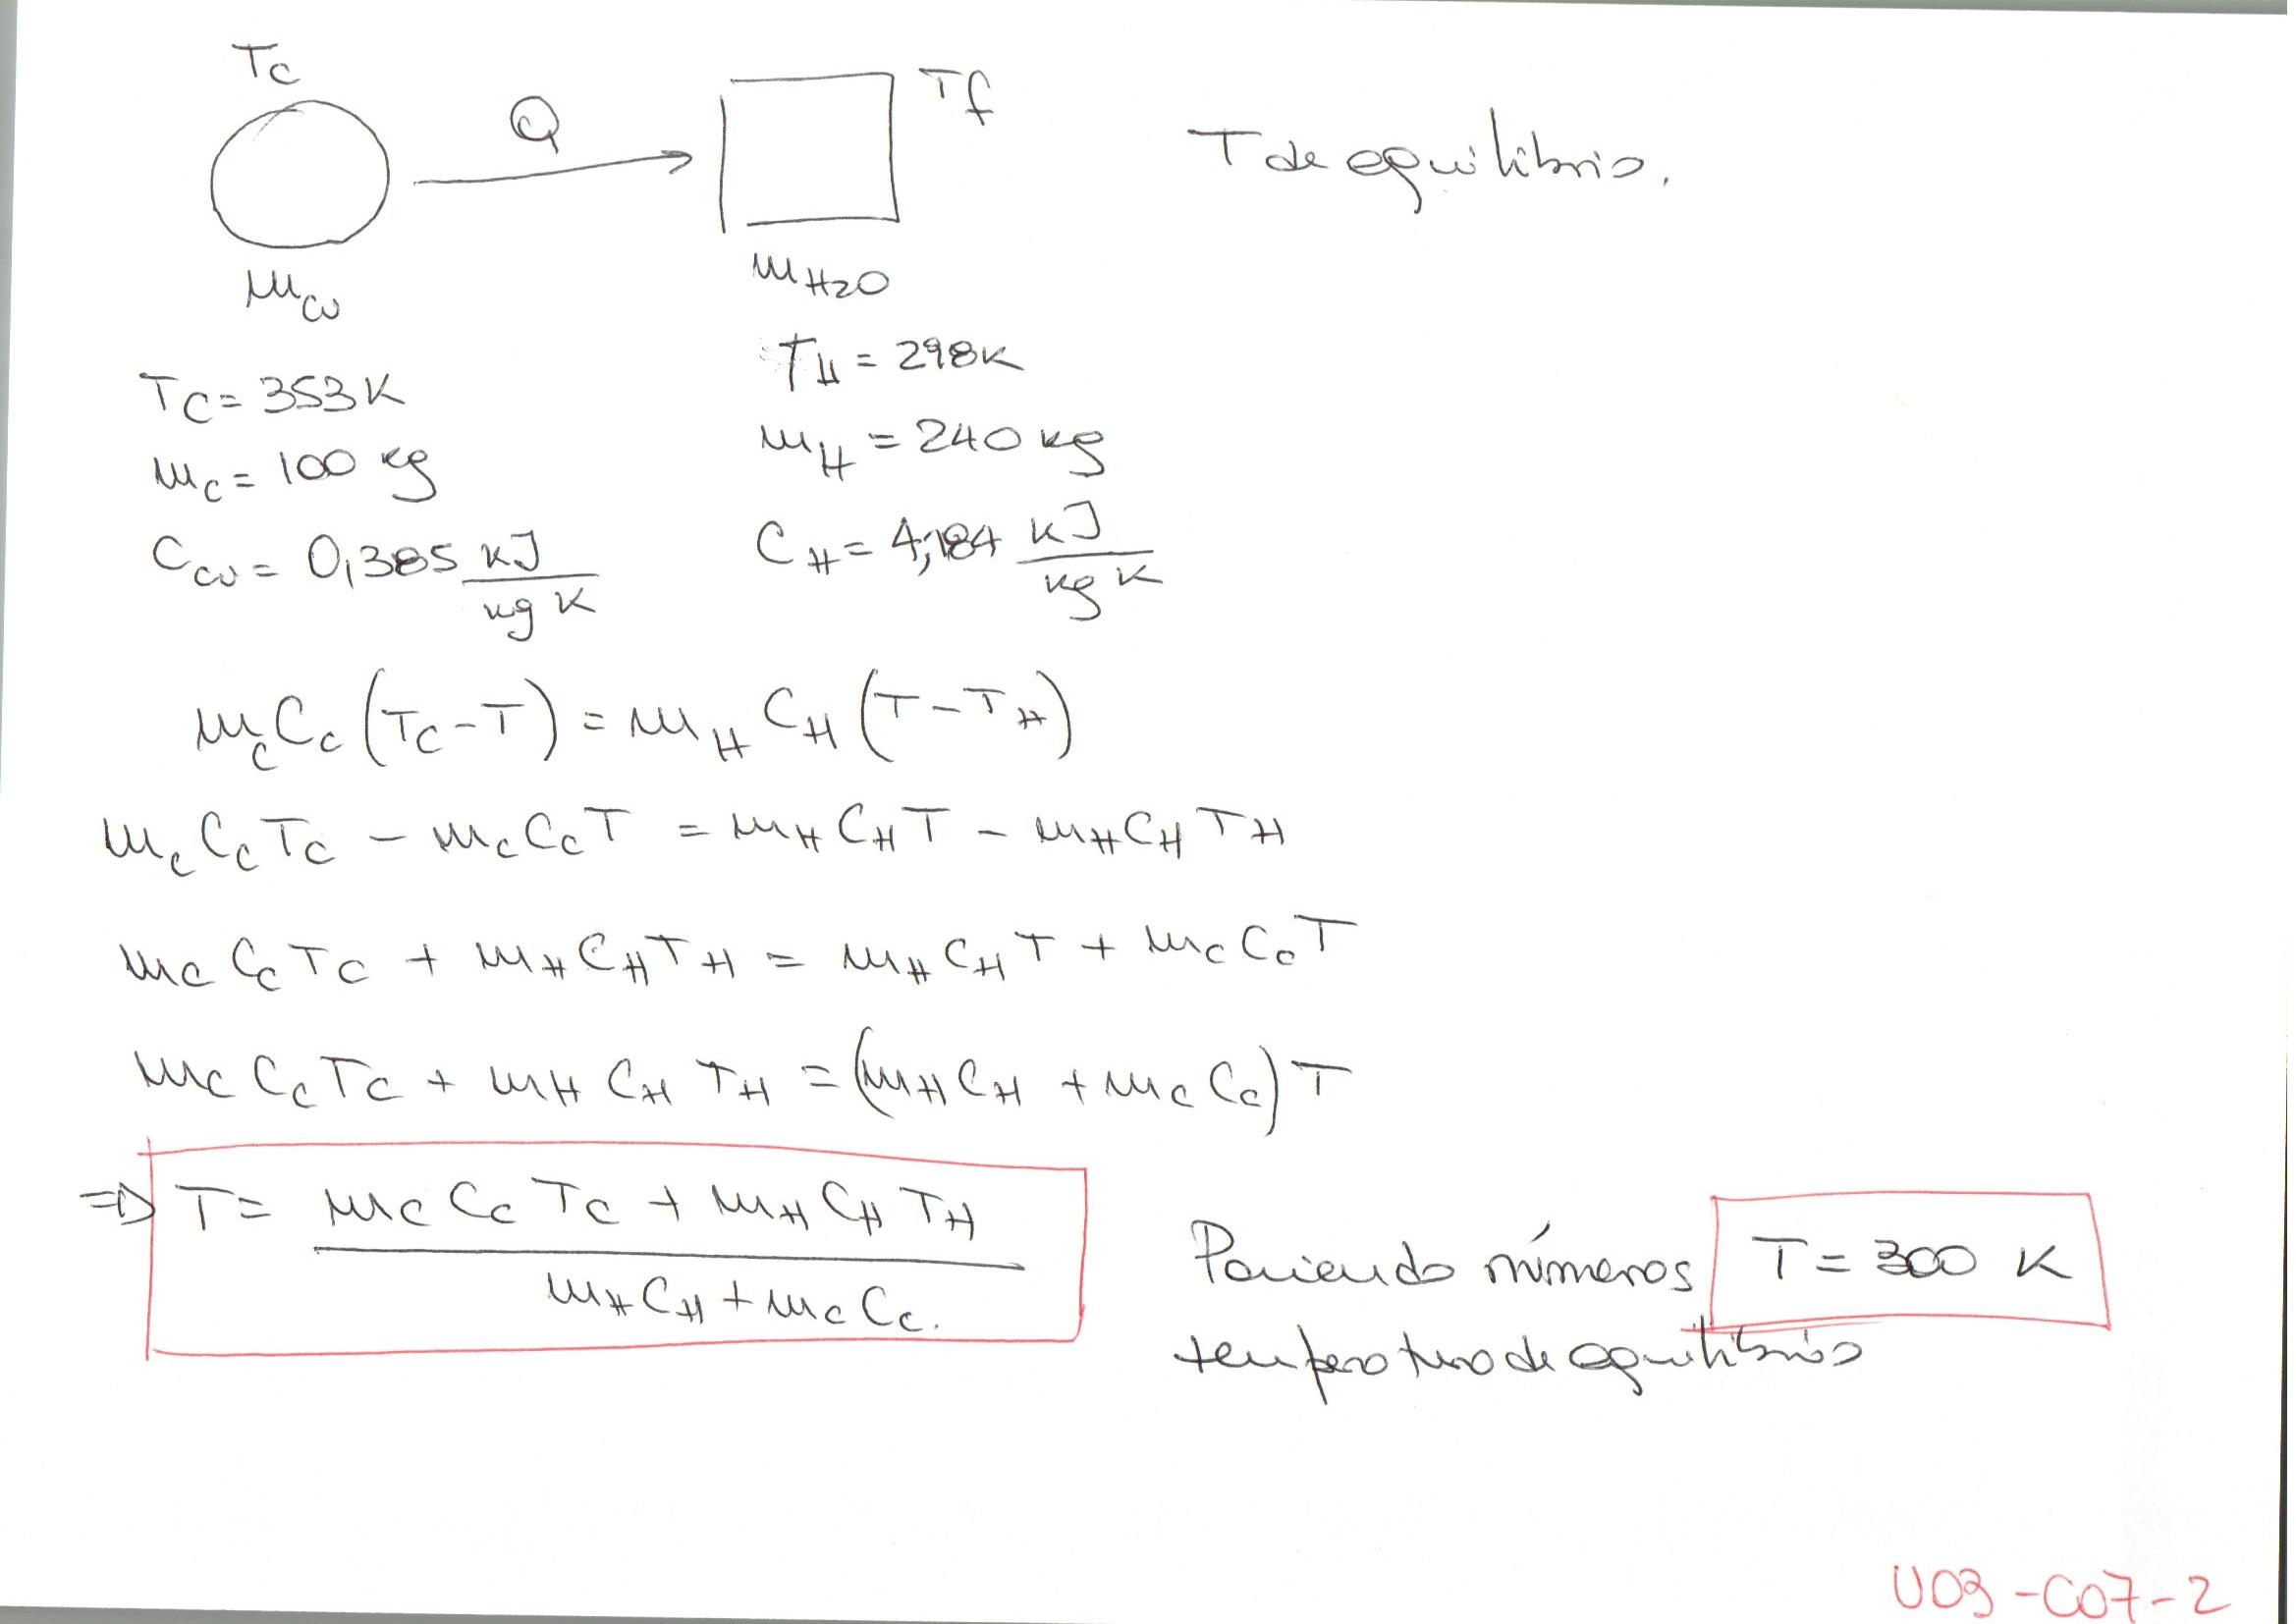 Tc
Q
Tf
T de equilibrio.
mcu
mH2O
Tc = 353 K
TH = 298 K
mc = 100 kg
mH = 240 kg
Ccu = 0,385 kJ / kg K
CH = 4,184 kJ / kg K
mc Cc (Tc - T) = mH CH (T - TH)
mc Cc Tc - mc Cc T = mH CH T - mH CH TH
mc Cc Tc + mH CH TH = mH CH T + mc Cc T
mc Cc Tc + mH CH TH = (mH CH + mc Cc) T
⇒ T = mc Cc Tc + mH CH TH / mH CH + mc Cc.
Poniendo números T = 300 K
temperatura de equilibrio
U03-C07-2